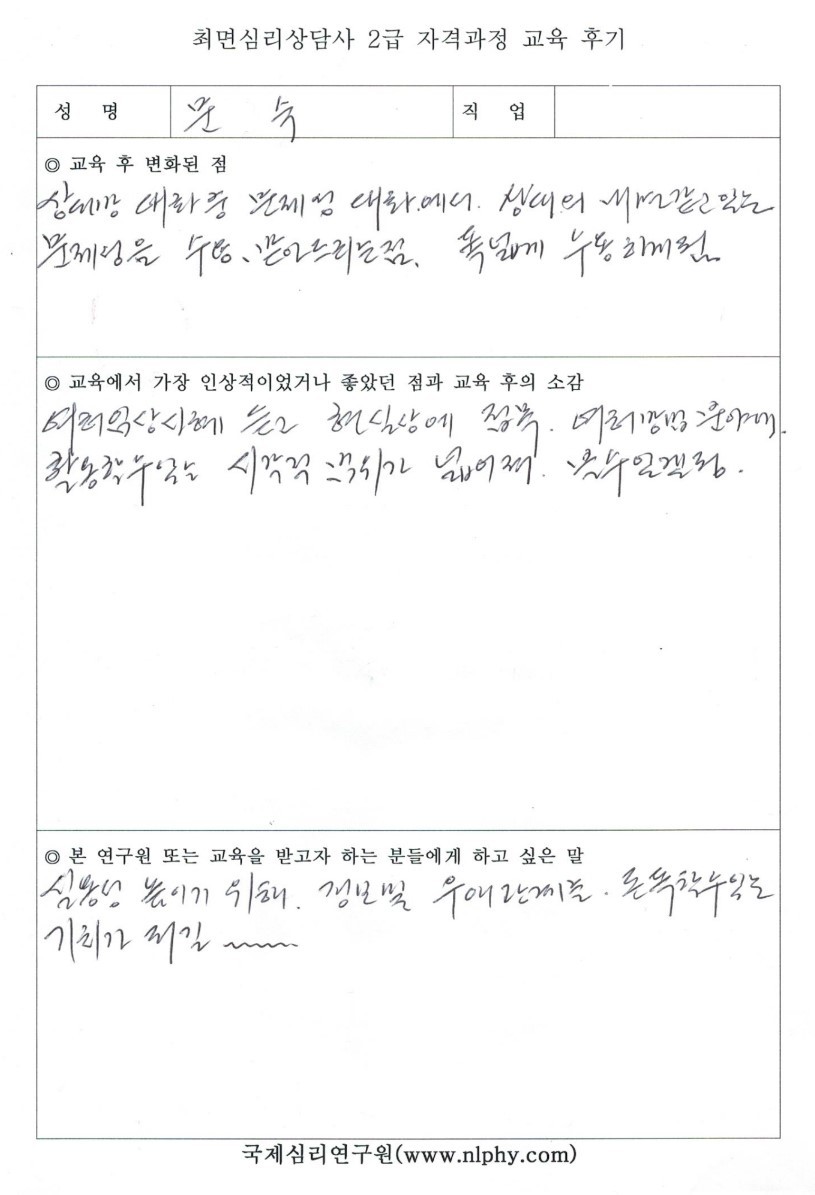 최면심리상담사 2급 자격과정 교육 후기
성 명 문 숙 직 업
◎ 교육 후 변화된 점
상대방 대화중 문제성 대화에서. 상대의 내면갖고있는
문제성을 수용、받아드리는점、 폭넓게 수용하게됨.
◎ 교육에서 가장 인상적이었거나 좋았던 점과 교육 후의 소감
여러임상사례 듣고 현실상에 접목. 여러방면 분야에.
활용할수있는 시각적 범위가 넓어져.
◎ 본 연구원 또는 교육을 받고자 하는 분들에게 하고 싶은 말
실용성 높이기 위해. 정보및 우애관계를. 돈독할수있는
기회가 되길 ~~~~
국제심리연구원(www.nlphy.com)